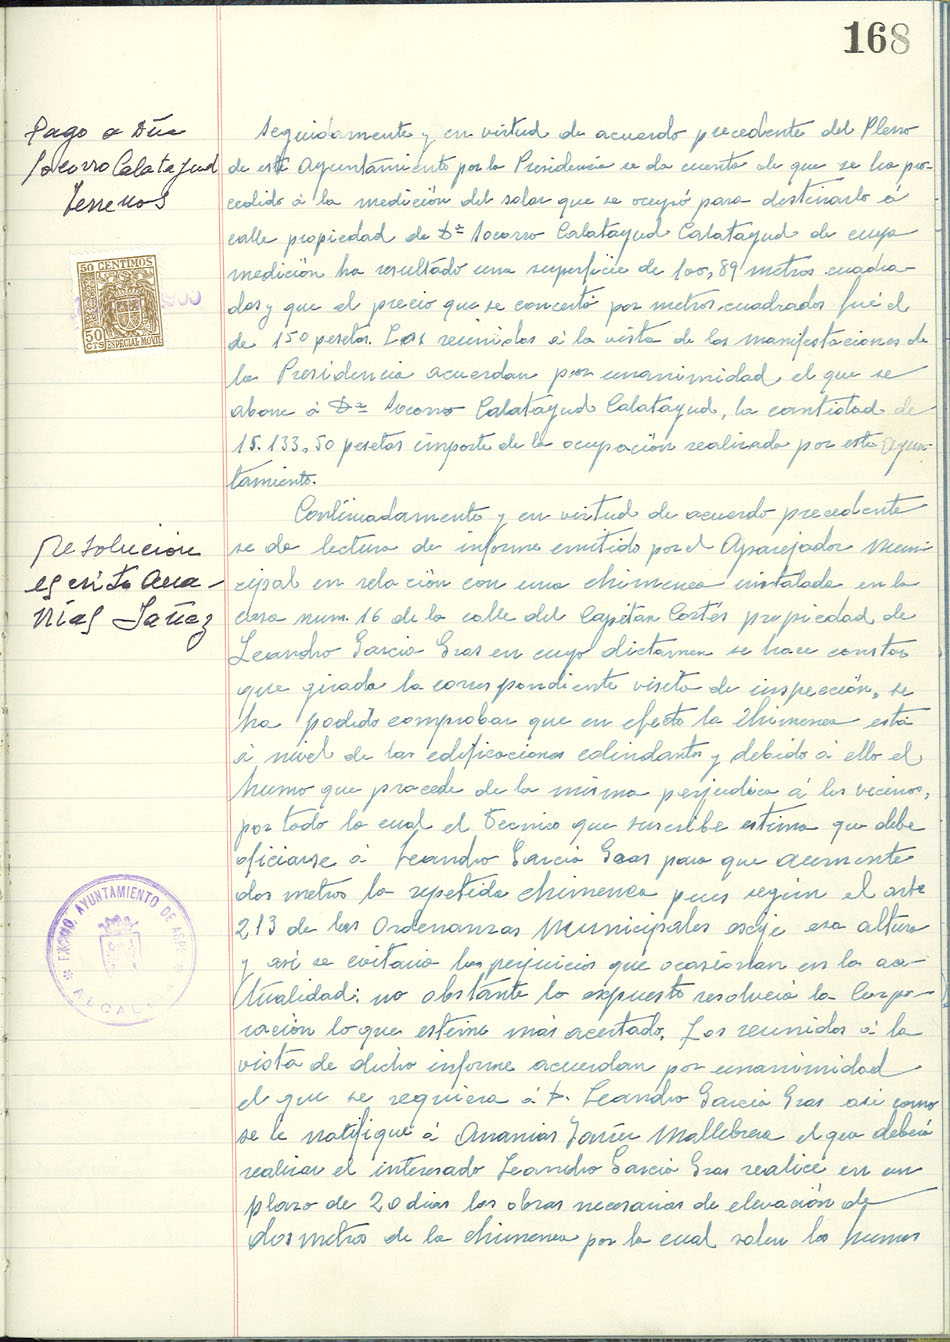 168
Pago a Dña
Socorro Calatayud
Terrenos
Seguidamente y en virtud de acuerdo precedente del Pleno
de este Ayuntamiento por la Presidencia se da cuenta de que se ha pro-
cedido á la medición del solar que se ocupó para destinarlo á
calle propiedad de Dª Socorro Calatayud Calatayud de cuya
medición ha resultado una superficie de 100,89 metros cuadra-
dos y que el precio que se concertó por metros cuadrados fué el
de 150 pesetas. Los reunidos á la vista de las manifestaciones de
la Presidencia acuerdan por unanimidad el que se
abone á Dª Socorro Calatayud Calatayud, la cantidad de
15.133,50 pesetas importe de la ocupación realizada por este Ayun-
tamiento.
50 CENTIMOS
50
CTS ESPECIAL MOVIL
Resolución
escrito Ana-
nías Yañez
Continuadamente y en virtud de acuerdo precedente
se da lectura de informe emitido por el Aparejador Muni
cipal en relación con una chimenea instalada en la
casa num. 16 de la calle del Capitán Cortés propiedad de
Leandro Garcia Gras en cuyo dictamen se hace constar
que girada la correspondiente visita de inspección, se
ha podido comprobar que en efecto la chimenea está
á nivel de las edificaciones colindantes y debido á ello el
humo que procede de la misma perjudica á los vecinos,
por todo lo cual el Tecnico que suscribe estima que debe
oficiarse á Leandro Garcia Gras para que aumente
dos metros la repetida chimenea pues según el artº
213 de las Ordenanzas Municipales exije esa altura
y así se evitaria los perjuicios que ocasionan en la ac-
tualidad; no obstante lo expuesto resolverá la Corpo-
ración lo que estime más acertado. Los reunidos á la
vista de dicho informe acuerdan por unanimidad
el que se requiera á D. Leandro Garcia Gras asi como
se le notifique á Ananias Yañez Mallebrera el que deberá
realizar el interesado Leandro Garcia Gras realice en un
plazo de 20 dias las obras necesarias de elevación de
dos metros de la chimenea por la cual salen los humos
EXCMO. AYUNTAMIENTO DE ASPE
ALCALDIA